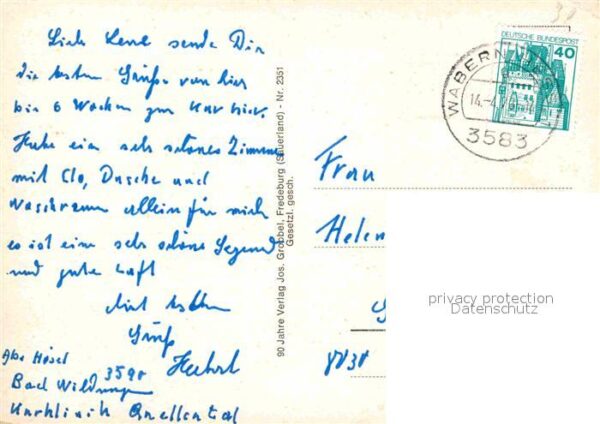 Liebe Lene sende Dir
die besten Grüße von hier
bin 6 Wochen zur Kur hier.
Habe ein sehr schönes Zimmer
mit Clo, Dusche und
Waschraum allein für mich
es ist eine sehr schöne Gegend
und gute Luft
Mit besten
Gruß
Abs
3590
Bad Wildungen
Kurklinik Quellental
90 Jahre Verlag Jos. Grobbel, Fredeburg (Sauerland) - Nr. 2351
Gesetzl. gesch.
DEUTSCHE BUNDESPOST
40
WABERN
14.-4.
3583
Frau
Helen
privacy protection
Datenschutz